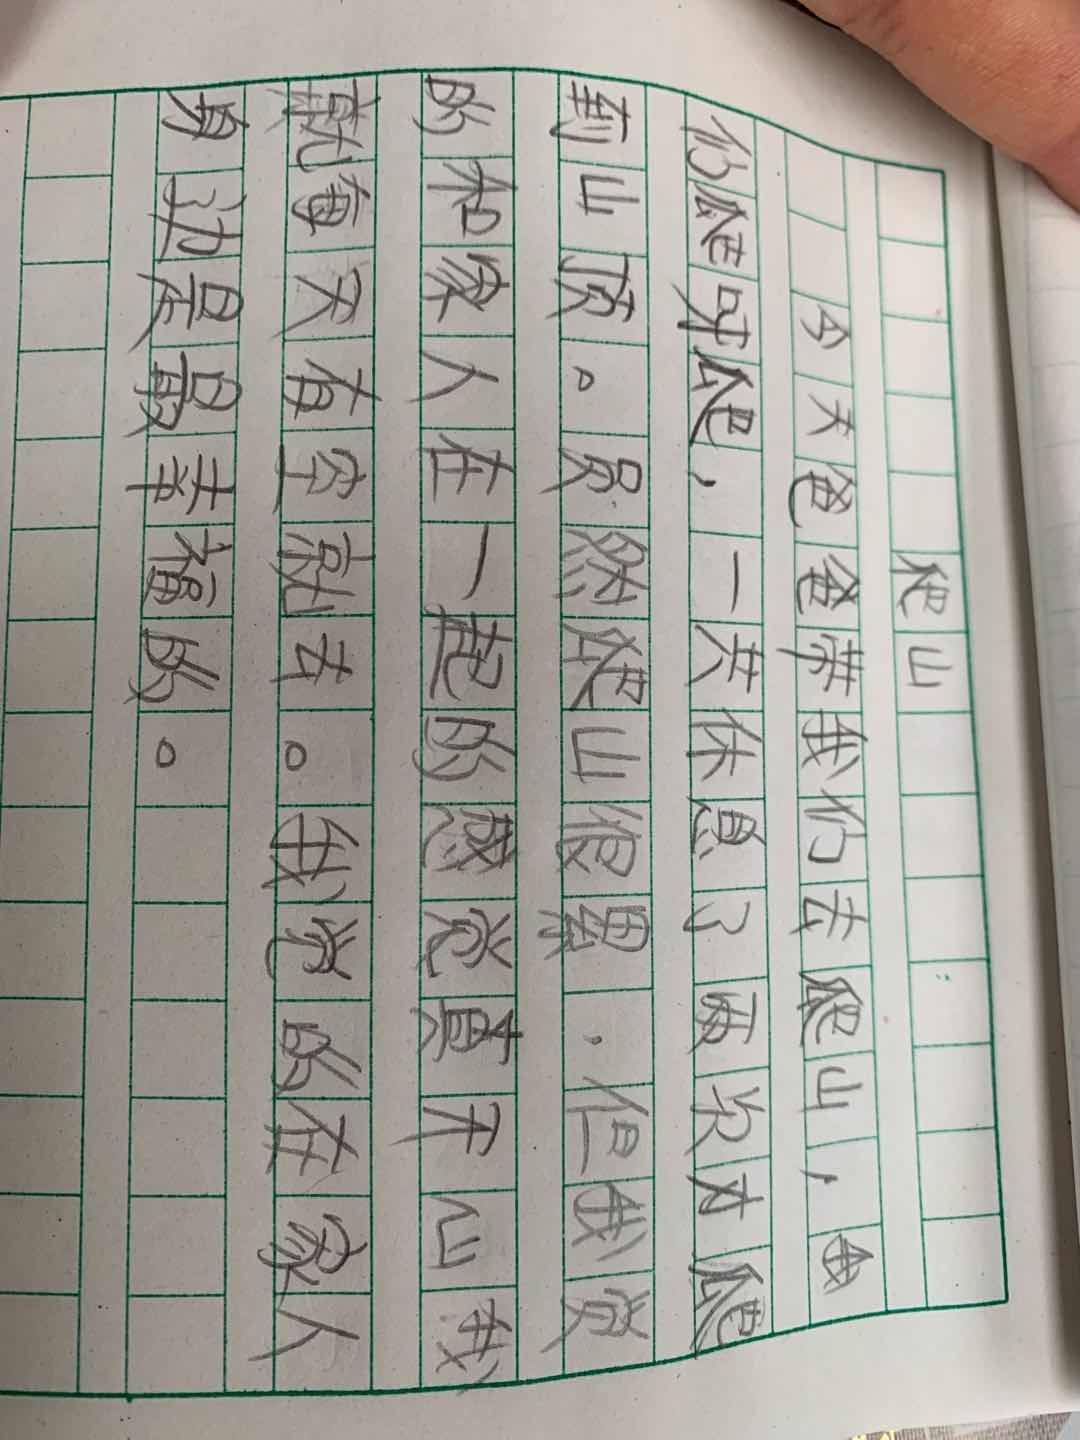 爬山
今天爸爸带我们去爬山，我
们爬呀爬，一共休息了两次才爬
到山顶。虽然爬山很累，但我觉
的和家人在一起的感觉真开心我
就每天有空就去。我觉的在家人
身边是最幸福的。